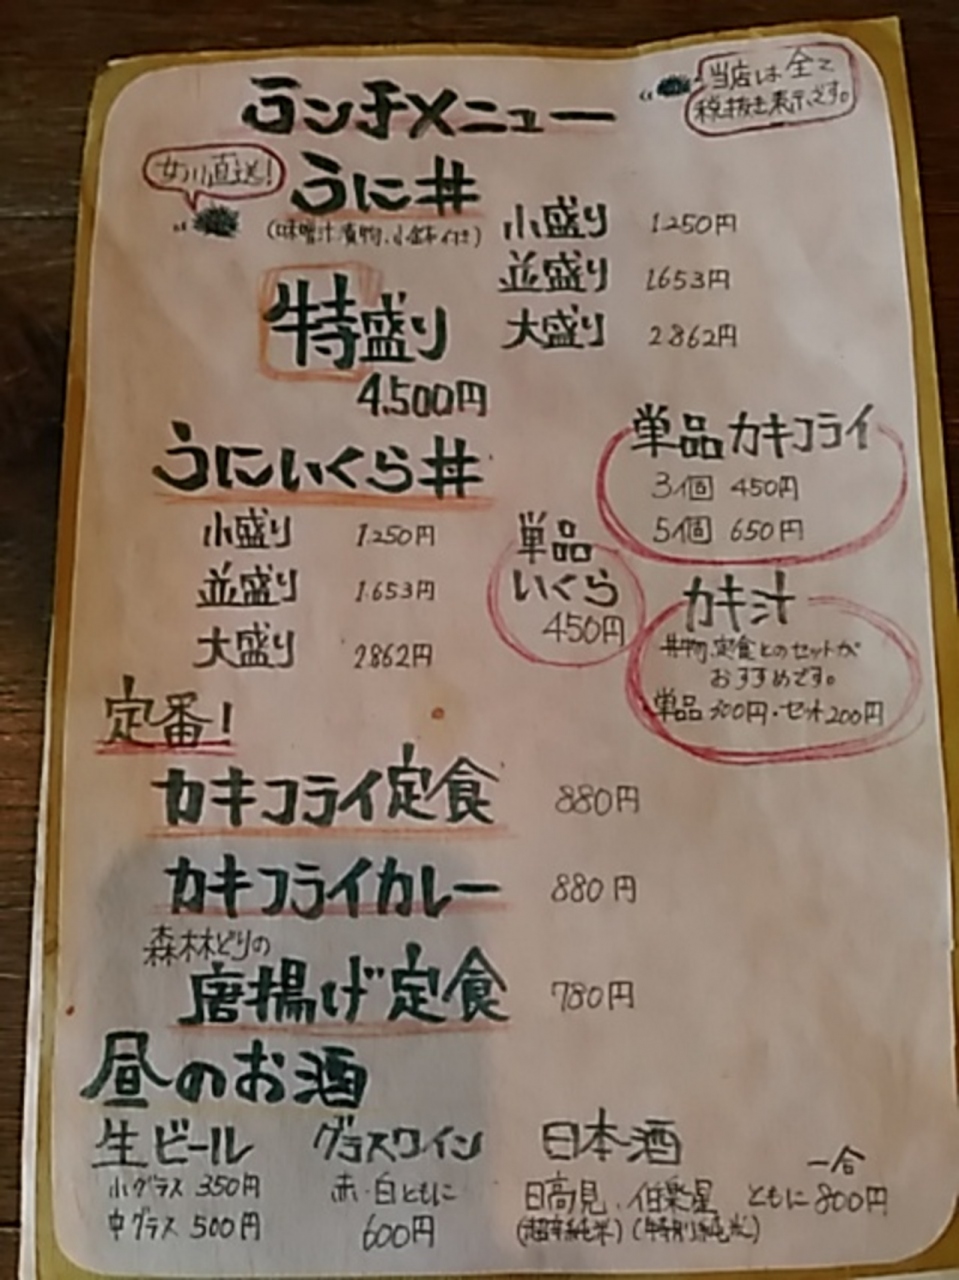 ランチメニュー
当店は全て
税抜き表示です。
女川直送!
うに丼
(味噌汁、漬物、小鉢付き)
小盛り 1,250円
並盛り 1,653円
大盛り 2,862円
特盛り
4,500円
うにいくら丼
小盛り 1,250円
並盛り 1,653円
大盛り 2,862円
単品カキフライ
3個 450円
5個 650円
単品
いくら
450円
カキ汁
丼物、定食とのセットが
おすすめです。
単品300円・セット200円
定番!
カキフライ定食 880円
カキフライカレー 880円
森林どりの
唐揚げ定食 780円
昼のお酒
生ビール
小グラス 350円
中グラス 500円
グラスワイン
赤・白ともに
600円
日本酒
一合
日高見、伯楽星 ともに800円
(超辛純米)(特別純米)